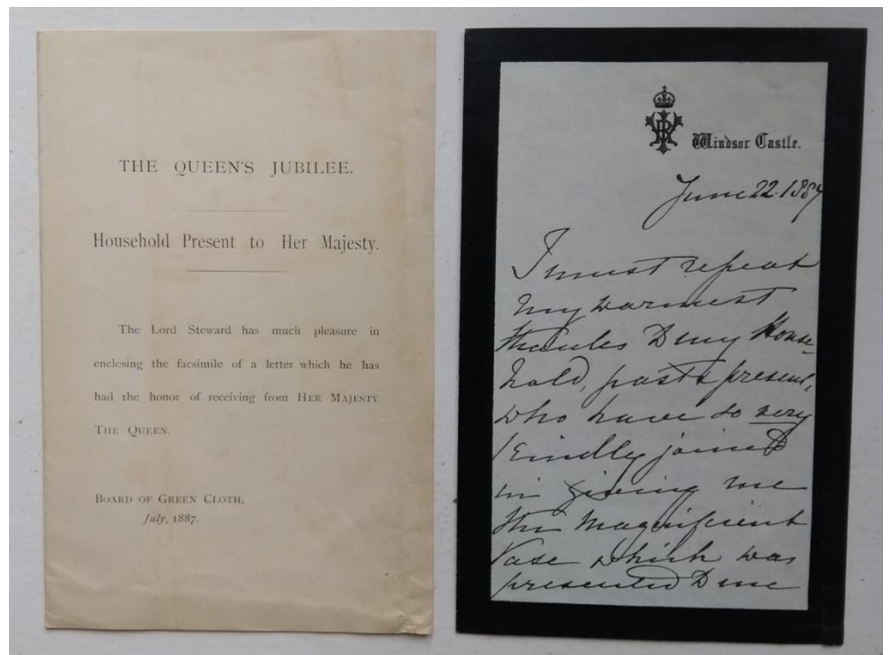 THE QUEEN'S JUBILEE.
Household Present to Her Majesty.
The Lord Steward has much pleasure in
enclosing the facsimile of a letter which he has
had the honor of receiving from HER MAJESTY
THE QUEEN.
BOARD OF GREEN CLOTH,
July, 1887.
Windsor Castle.
June 22. 1887
I must repeat
my warmest
thanks to my House-
hold, past & present,
who have so very
kindly joined
in giving me
the magnificent
Vase which was
presented to me